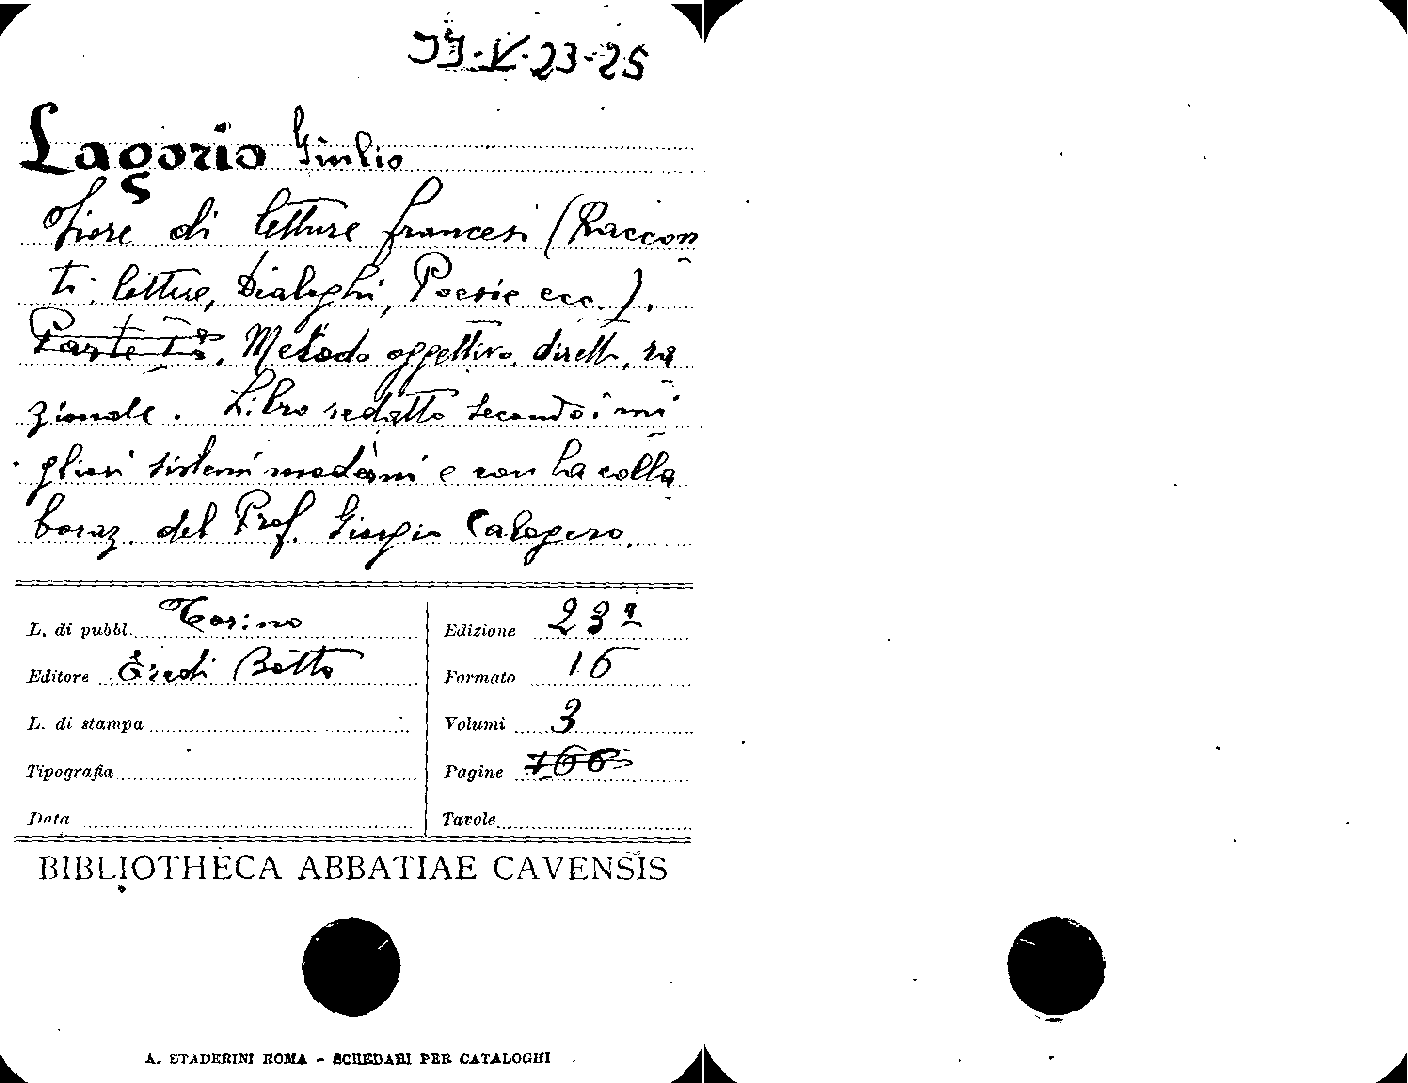 JJ-V-23-25
Lagorio Giulio
Fiore di letture francesi (Raccon
ti, letture, Dialoghi, Poesie ecc.).
Parte Iª. Metodo oggettivo, dirett., ra
zionale. Libro redatto secondo i mi
gliori sistemi moderni e con la colla
boraz. del Prof. Giorgio Calogero.
L. di pubbl. Torino
Editore Eredi Botta
L. di stampa
Tipografia
Data
Edizione 23ª
Formato 16
Volumi 3
Pagine 166
Tavole
BIBLIOTHECA ABBATIAE CAVENSIS
A. STADERINI ROMA - SCHEDARI PER CATALOGHI